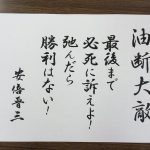 油断大敵
最後まで
必死に訴えよ！
弛んだら
勝利はない！
安倍晋三